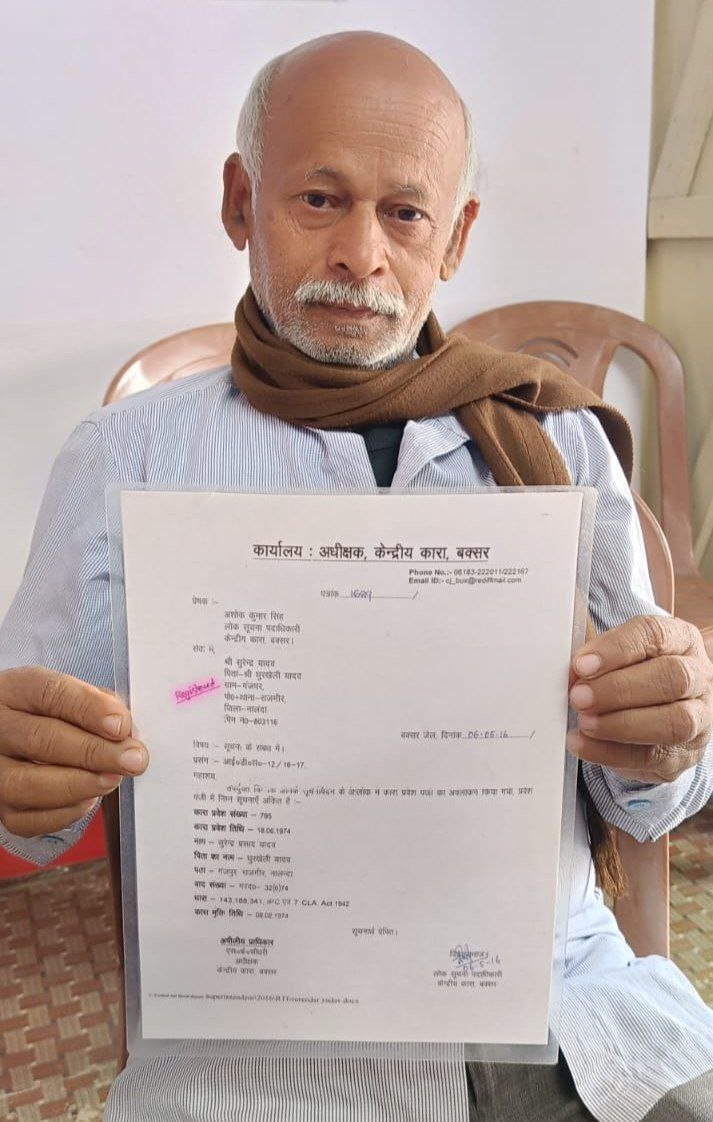 कार्यालय : अधीक्षक, केन्द्रीय कारा, बक्सर
Phone No.:- 06183-222011/222167
Email ID:- cj_bux@rediffmail.com
पत्रांक 1689 /
प्रेषक :-
अशोक कुमार सिंह
लोक सूचना पदाधिकारी
केन्द्रीय कारा, बक्सर।
सेवा में,
श्री सुरेन्द्र यादव
पिता-श्री घुरखेली यादव
Registered
ग्राम-गंजपर,
पो०+थाना-राजगीर,
जिला-नालंदा
पिन न0-803116
बक्सर जेल, दिनांक 06.05.16 /
विषय :- सूचना के संबंध में।
प्रसंग :- आई०डी०स०-12/16-17.
महाशय,
के आलोक में कारा प्रवेश पंजी का अवलोकन किया गया, प्रवेश
पंजी में निम्न सूचनाएँ अंकित है :-
कारा प्रवेश संख्या – 795
कारा प्रवेश तिथि – 18.06.1974
नाम – सुरेन्द्र प्रसाद यादव
पिता का नाम – घुरखेली यादव
पता – गंजपर राजगीर, नालन्दा
वाद संख्या – 32(6)74
धारा – 143,188,341, IPC एवं 7 CLA Act 1942
कारा मुक्ति तिथि – 08.08.1974
सूचनार्थ प्रेषित।
अपीलीय प्राधिकार
एस०के०चौधरी
अधीक्षक
केन्द्रीय कारा, बक्सर
06.5.16
लोक सूचना पदाधिकारी
केन्द्रीय कारा, बक्सर
superintendent\2016\RTI\surendar yadav.docx